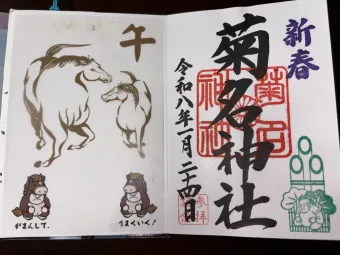 新春
菊名神社
菊名
神社
令和八年一月二十四日
参拝
午
がまんして、
うまくいく！